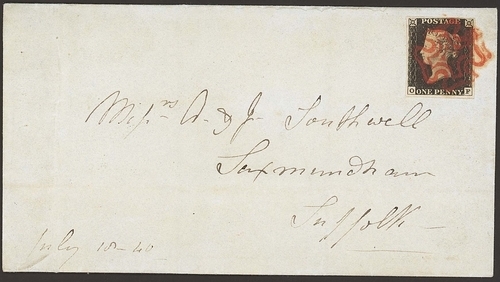 POSTAGE
O F
ONE PENNY
Mess.rs A. & J. Southwell
Saxmundham
Suffolk
July 18-40